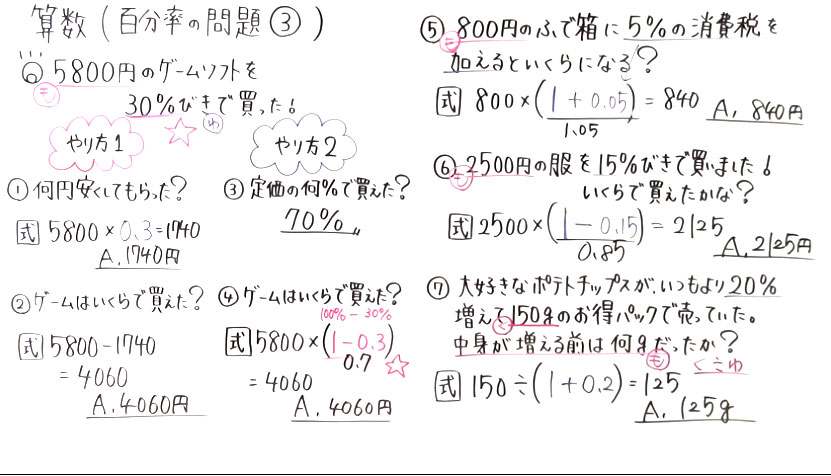 算数(百分率の問題③)
5800円のゲームソフトを
も
30%びきで買った!
わ
やり方1
やり方2
①何円安くしてもらった?
式 5800×0.3=1740
A.1740円
②ゲームはいくらで買えた?
式 5800-1740
=4060
A.4060円
③定価の何%で買えた?
70%〃
④ゲームはいくらで買えた?
100%-30%
式 5800×(1-0.3)
0.7
=4060
A.4060円
⑤800円のふで箱に5%の消費税を
も
加えるといくらになる?
式 800×(1+0.05)=840 A.840円
1.05
⑥2500円の服を15%びきで買いました!
も
いくらで買えたかな?
式 2500×(1-0.15)=2125
0.85
A.2125円
⑦大好きなポテトチップスが、いつもより20%
増えて150gのお得パックで売っていた。
く
中身が増える前は何gだったか?
も
く÷わ
式 150÷(1+0.2)=125
A.125g